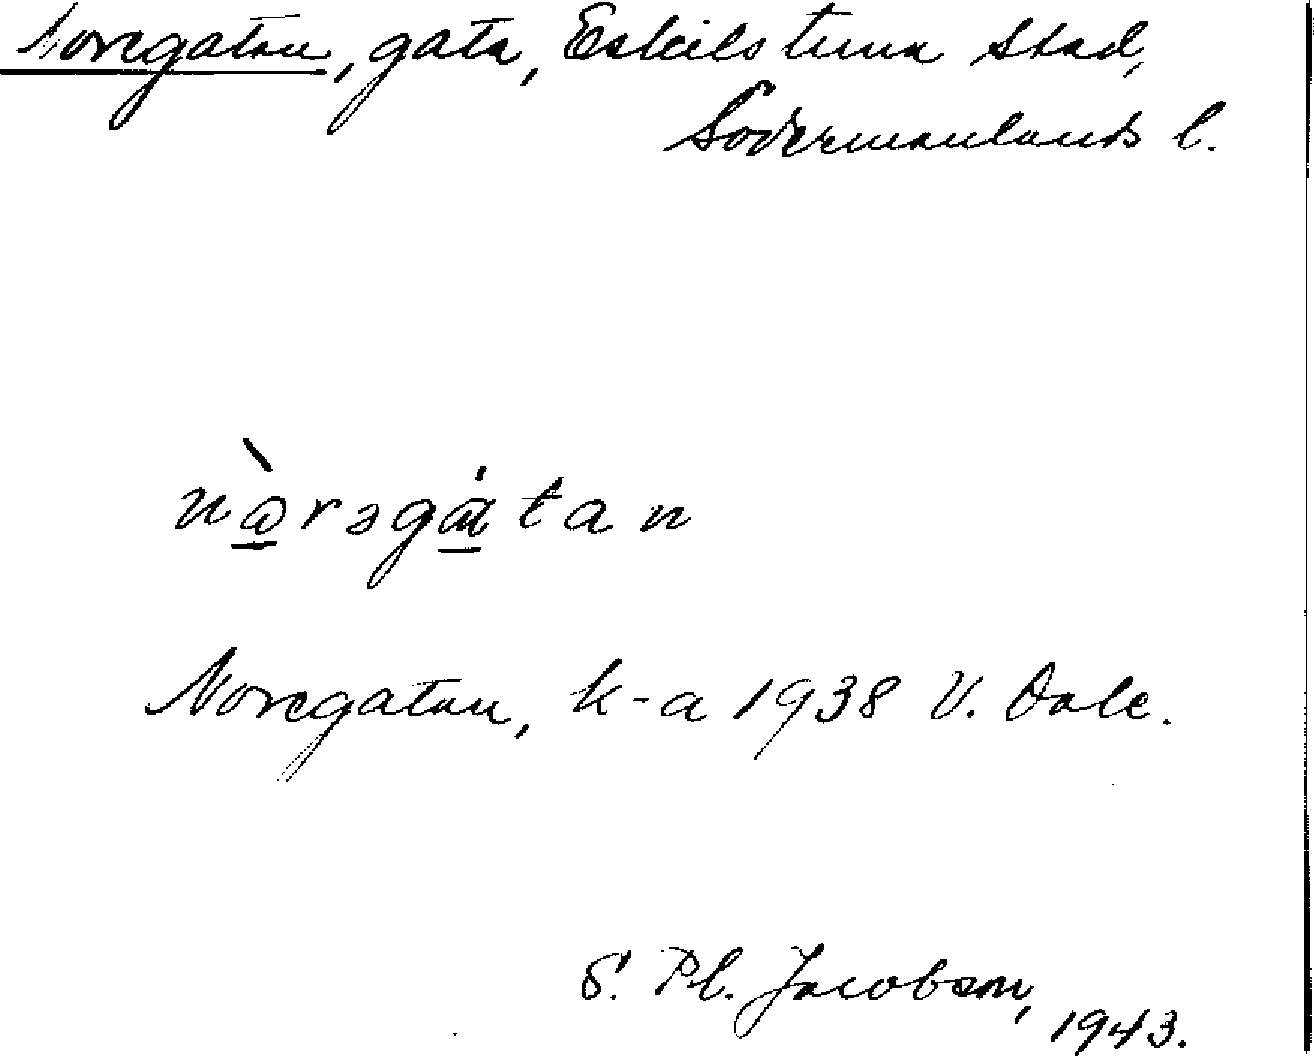 Noregatan, gata, Eskilstuna stad,
Södermanlands l.
nòrəgátan
Noregatan, k-a 1938 V. Dale.
S. Pl. Jacobson,
1943.